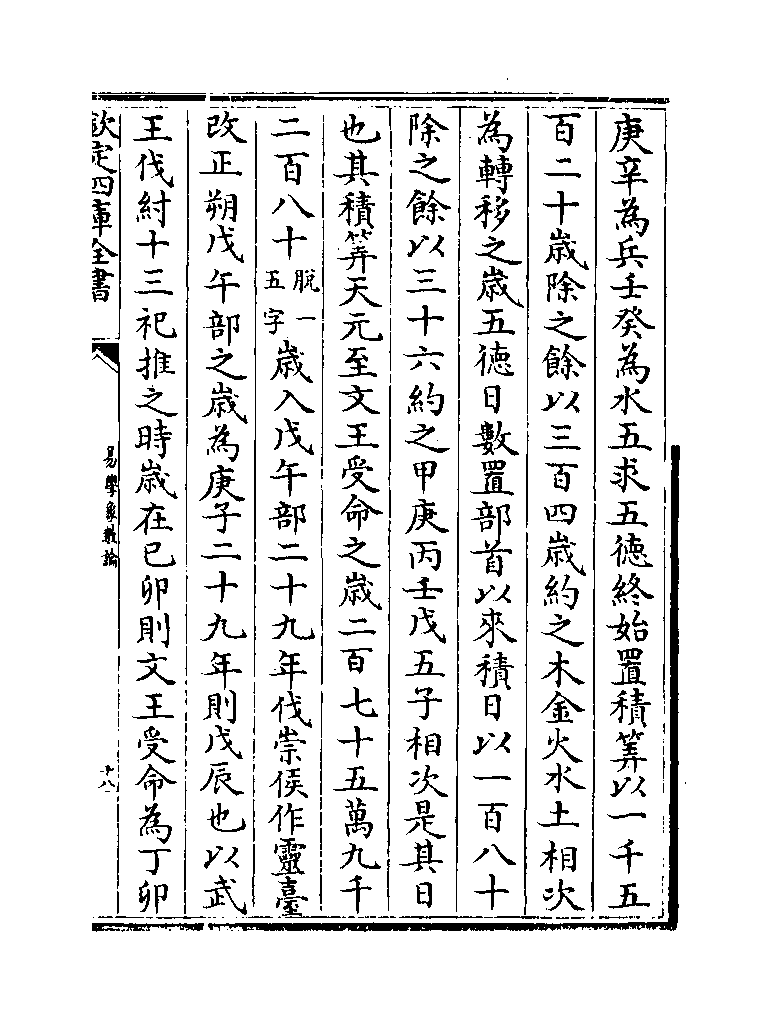 庚辛為兵壬癸為水五求五德終始置積筭以一千五
百二十歲除之餘以三百四歲約之木金火水土相次
為轉移之歲五德日數置部首以來積日以一百八十
除之餘以三十六約之甲庚丙壬戊五子相次是其日
也其積筭天元至文王受命之歲二百七十五萬九千
二百八十脫一五字歲入戊午部二十九年伐崇侯作靈臺
改正朔戊午部之歲為庚子二十九年則戊辰也以武
王伐紂十三祀推之時歲在己卯則文王受命為丁卯
欽定四庫全書
易學象數論
十八